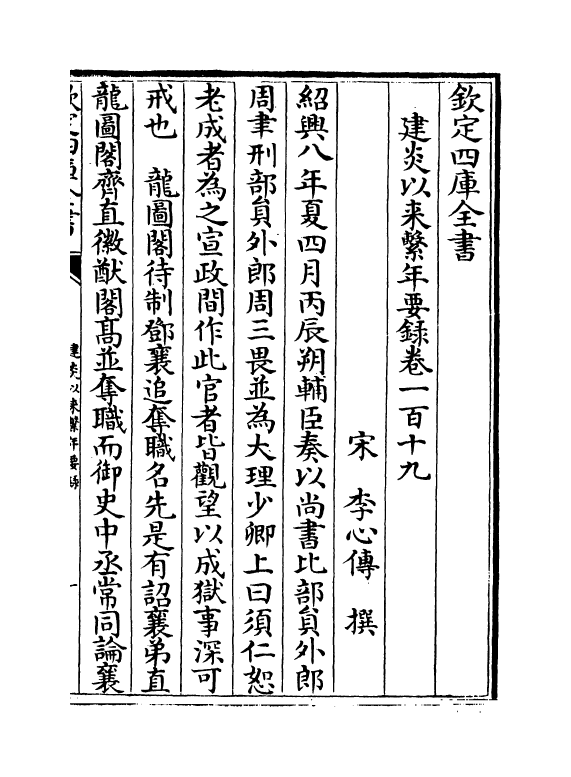 欽定四庫全書
建炎以来繫年要錄卷一百十九
宋 李心傳 撰
紹興八年夏四月丙辰朔輔臣奏以尚書比部員外郎
周聿刑部員外郎周三畏並為大理少卿上曰須仁恕
老成者為之宣政間作此官者皆觀望以成獄事深可
戒也 龍圖閣待制鄧襄追奪職名先是有詔襄弟直
龍圖閣齊直徽猷閣髙並奪職而御史中丞常同論襄
欽定四庫全書
建炎以来繫年要錄
一